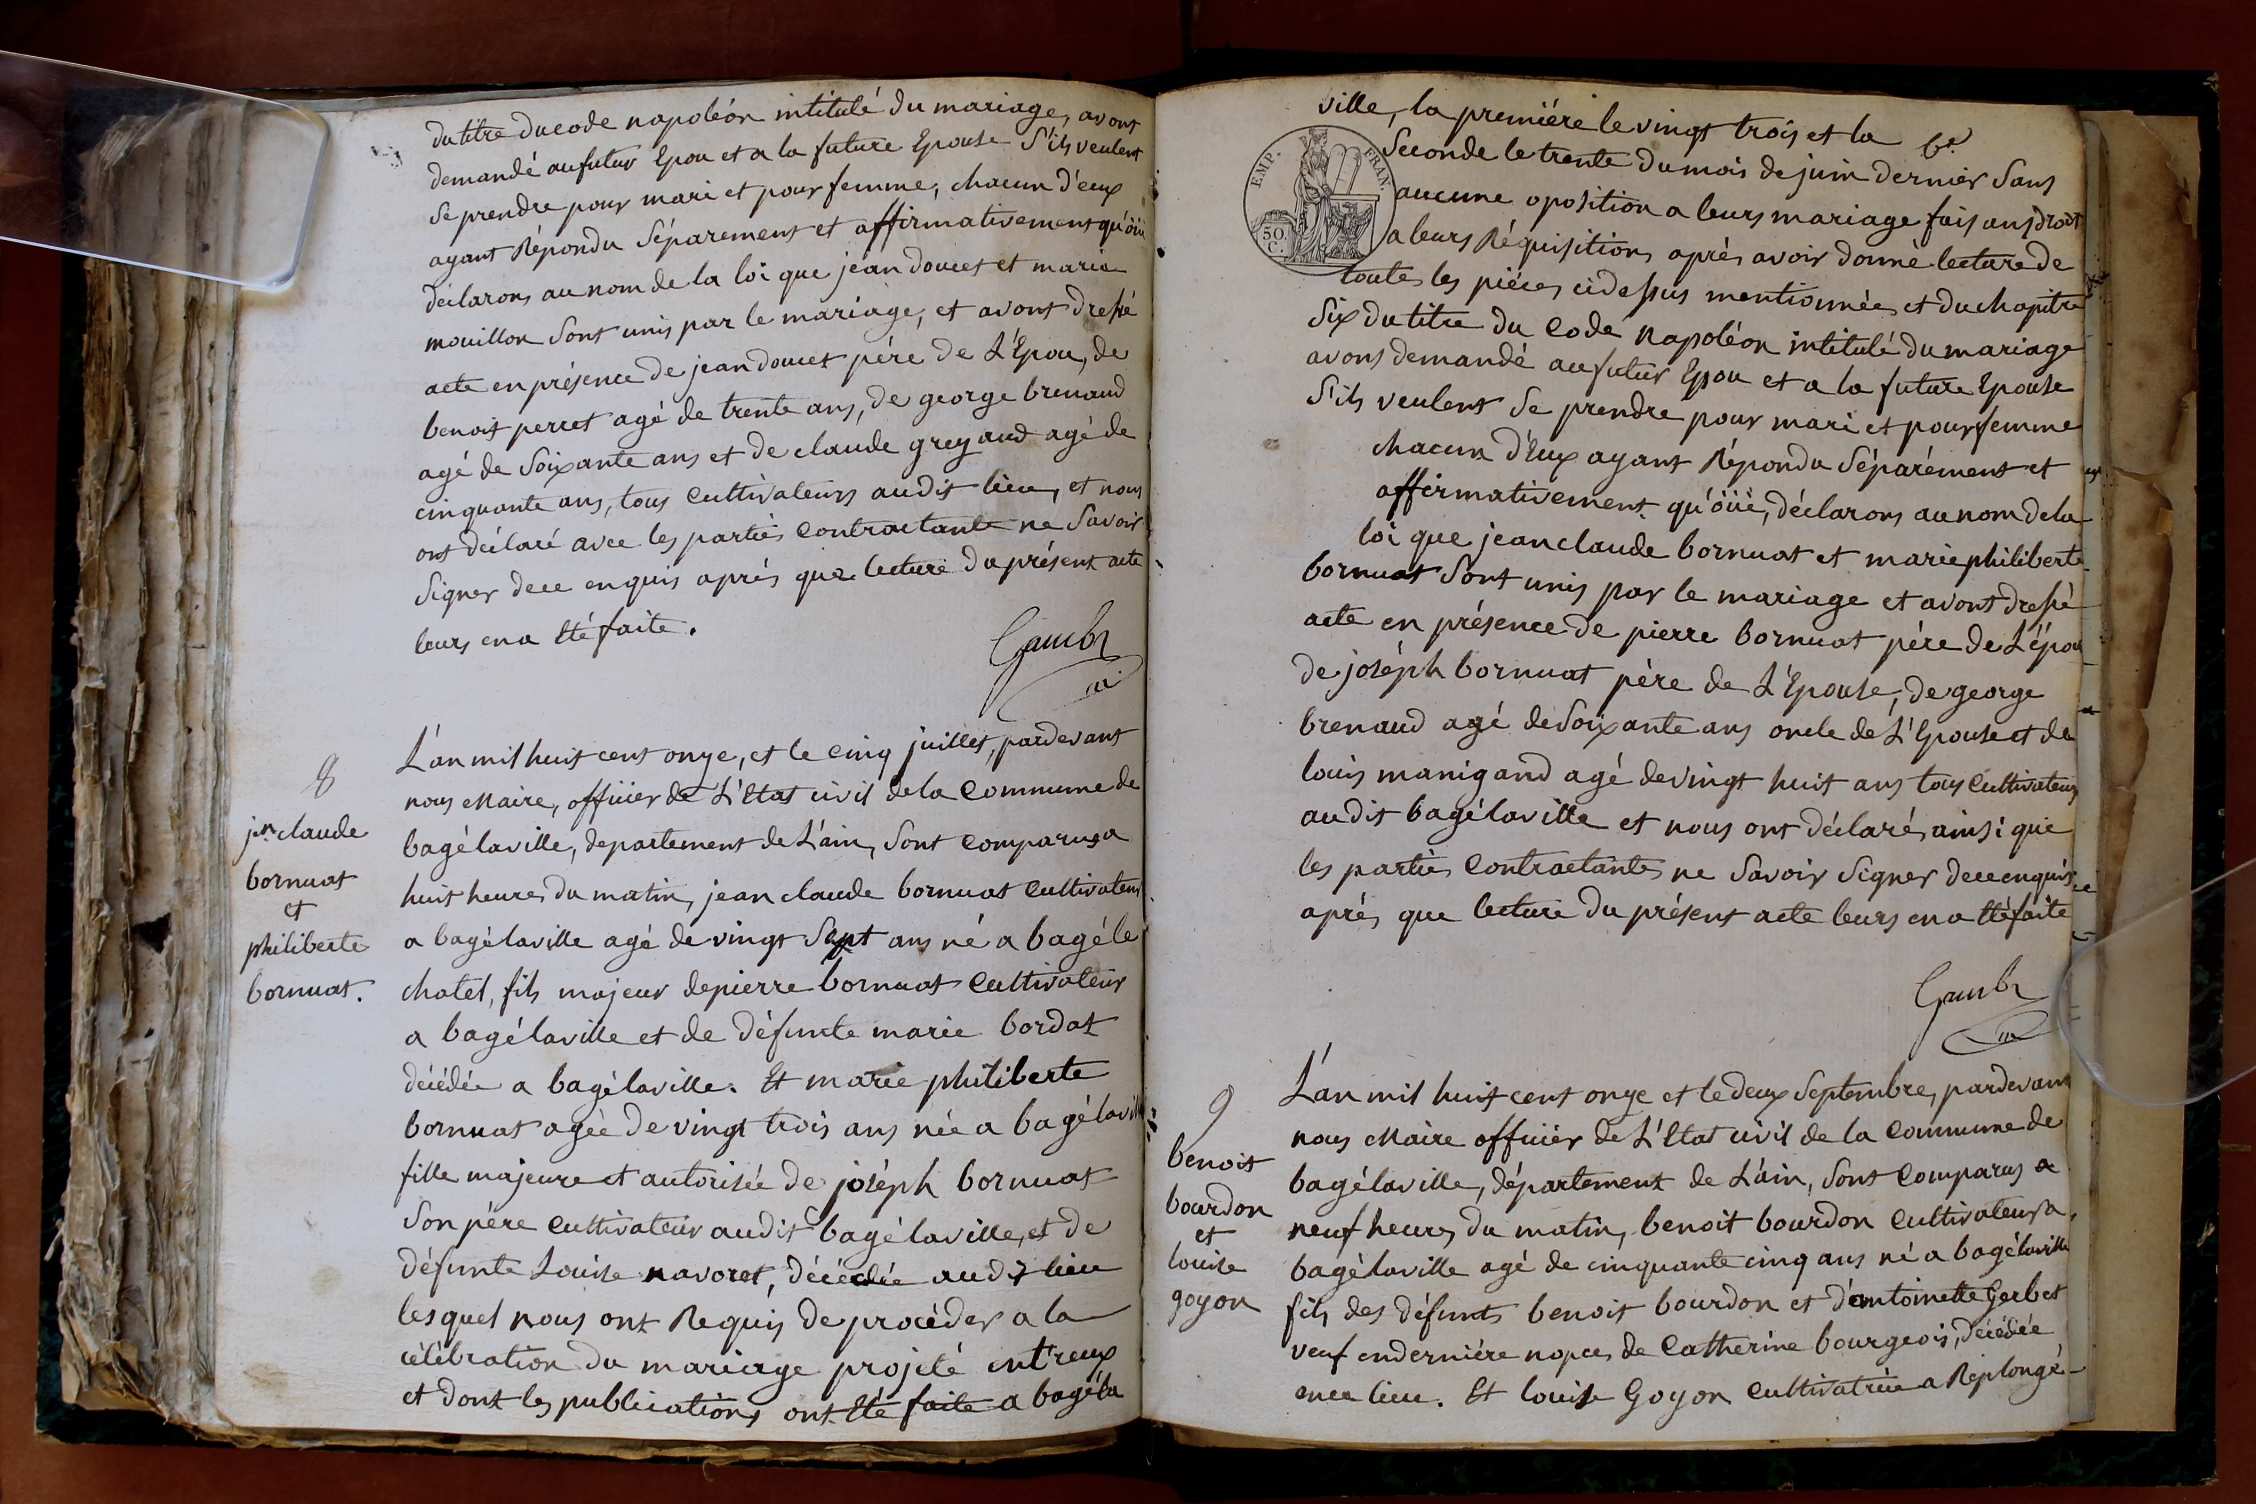 du titre du code napoléon intitulé du mariage, avons
demandé au futur Epou et a la future Epouse S'ils veulent
se prendre pour mari et pour femme, chacun d'eux
ayant Répondu Séparement et affirmativement qu'öüi
déclarons au nom de la loi que jean doucet et marie
mouillon Sont unis par le mariage, et avons dressé
acte en présence de jean doucet père de L'Epou, de
benoit perret agé de trente ans, de george brenaud
agé de Soixante ans et de claude greyaud agé de
cinquante ans, tous cultivateurs audit lieu, et nous
ont déclaré avec les partie contractante ne Savoir
Signer de ce enquis après que lecture du présent acte
leurs en a Eté faite.
8
jn claude
bornuat
et
philiberte
bornuat.
L'an mil huit cent onze, et le cinq juillet, pardevant
nous Maire, officier de L'Etat civil de la commune de
bagélaville, departement de L'ain, Sont comparus a
huit heures du matin, jean claude bornuat cultivateur
a bagélaville agé de vingt Sept ans né a bagéle
chatel, fils majeur de pierre bornuat cultivateur
a bagélaville et de défunte marie bordat
décédée a bagélaville. Et marie philiberte
bornuat agée de vingt trois ans née a bagélaville
fille majeure et autorisée de joséph bornuat
Son père cultivateur audit bagélaville, et de
défunte Louise navoret, décédée audit lieu
lesquel nous ont Requis de procéder a la
célébration du mariage projeté entreux
et dont les publications ont Eté faite a bagéla
ville, la première le vingt trois et la
6e
EMP. FRAN.
50 C.
Seconde le trente du mois de juin dernier Sans
aucune oposition a leurs mariage faisans droit
a leurs Réquisitions après avoir donné lecture de
toutes les pièces cidessus mentionnées et du chapitre
Six du titre du Code Napoléon intitulé du mariage
avons demandé au futur Epou et a la future Epouse
S'ils veulent Se prendre pour mari et pour femme
chacun d'Eux ayant Répondu Séparément et
affirmativement qu'öüi, déclarons au nom de la
loi que jean claude bornuat et marie philiberte
bornuat Sont unis par le mariage et avons dressé
acte en présence de pierre bornuat père de L'épou
de joséph bornuat père de L'Epouse, de george
brenaud agé de Soixante ans oncle de L'Epouse et de
louis manigand agé de vingt huit ans tous cultivateurs
audit bagélaville et nous ont déclaré, ainsi que
les partie Contractantes ne Savoir Signer de ce enquis
après que lecture du présent acte leurs en a Eté faite
9
benoit
bourdon
et
louise
goyon
L'an mil huit cent onze et le deux Septembre, pardevant
nous Maire officier de L'Etat civil de la commune de
bagélaville, département de L'ain, Sont comparus a
neuf heures du matin, benoit bourdon cultivateur a
bagélaville agé de cinquante cinq ans né a bagélaville
fils des défunts benoit bourdon et d'antoinette Gerbet
veuf en dernière nopces de Catherine bourgeois, décédée
en ce lieu. Et louise Goyon cultivatrice a Replongé